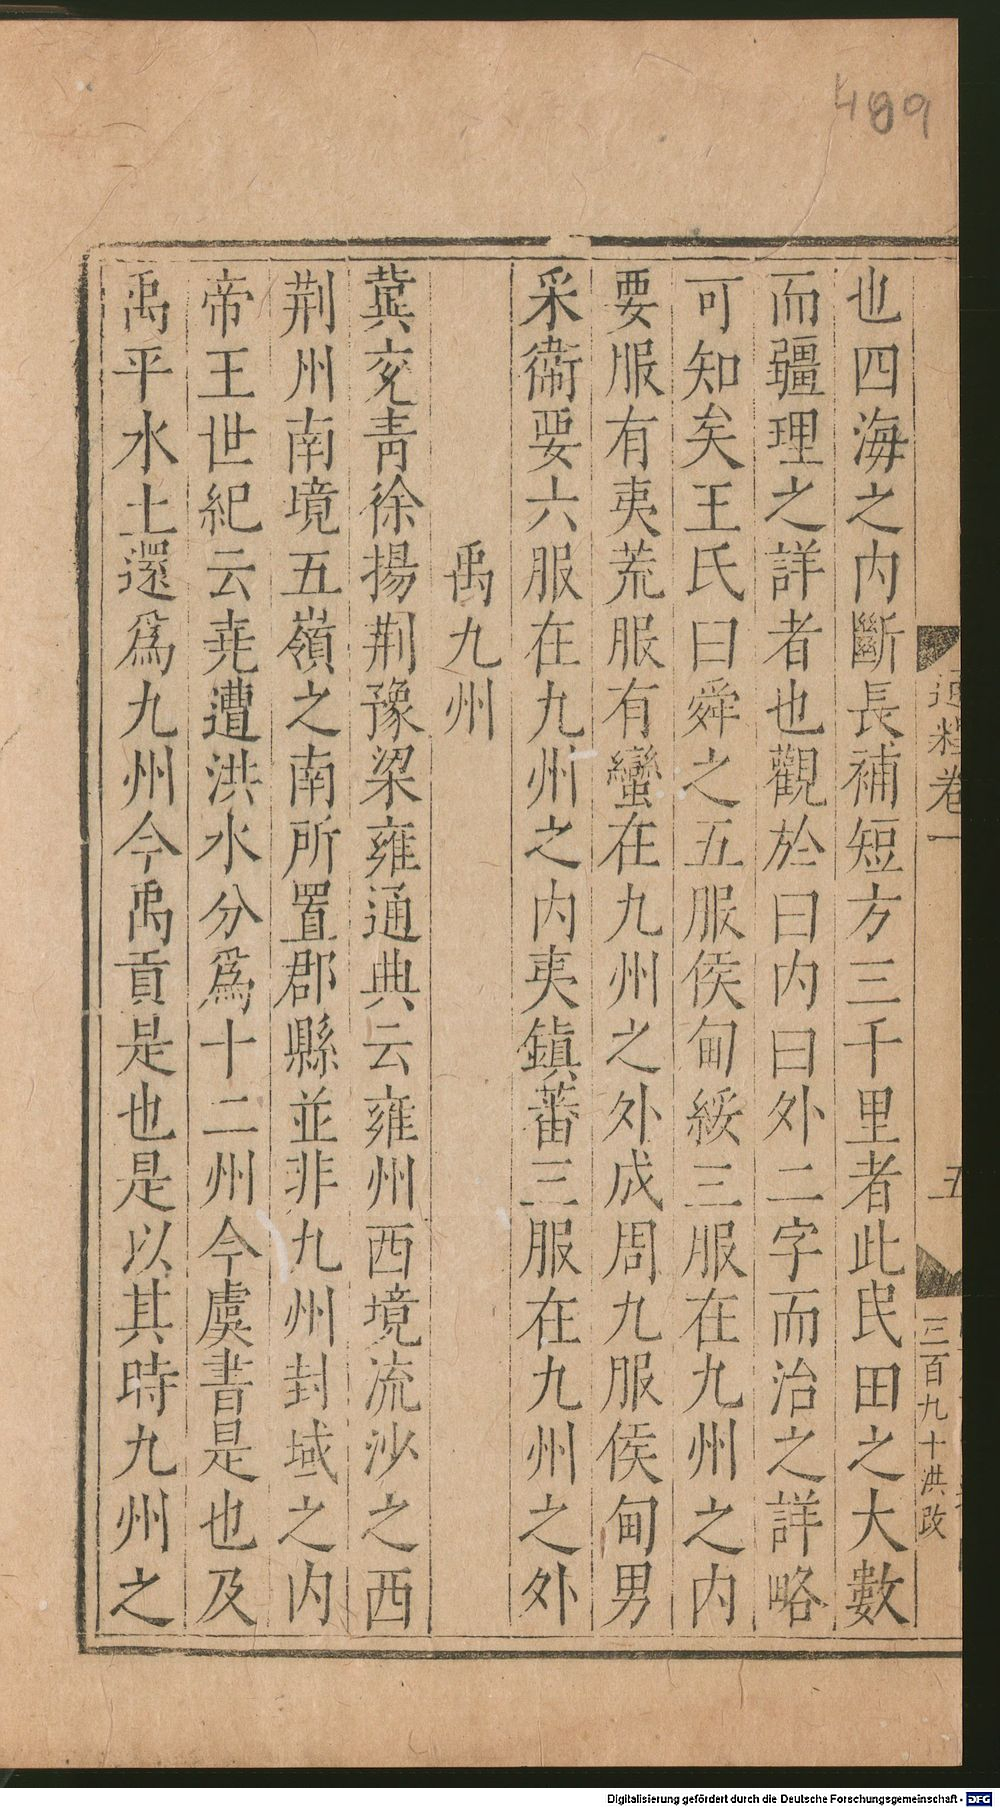 499
通釋卷一
五
三百九十洪改
也四海之内斷長補短方三千里者此民田之大數
而疆理之詳者也觀於曰内曰外二字而治之詳略
可知矣王氏曰舜之五服侯甸綏三服在九州之内
要服有夷荒服有蠻在九州之外成周九服侯甸男
采衞要六服在九州之内夷鎮蕃三服在九州之外
禹九州
冀兗青徐揚荆豫梁雍通典云雍州西境流沙之西
荆州南境五嶺之南所置郡縣並非九州封域之内
帝王世紀云堯遭洪水分爲十二州今虞書是也及
禹平水土還爲九州今禹貢是也是以其時九州之
Digitalisierung gefördert durch die Deutsche Forschungsgemeinschaft - DFG